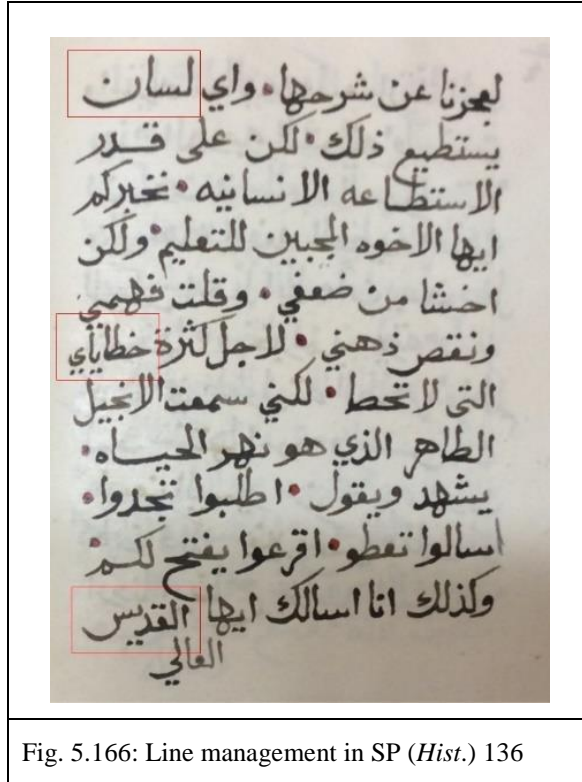 لعجزنا عن شرحها • واي لسان
يستطيع ذلك • لكن على قدر
الاستطاعه الانسانيه • نخبركم
ايها الاخوه المحبين للتعليم • ولكن
اخشا من ضعفي • وقلت فهمي
ونقص ذهني • لاجل كثرة خطاياي
التي لا تحط • لكني سمعت الانجيل
الطاهر الذي هو نهر الحياه •
يشهد ويقول • اطلبوا تجدوا •
اسالوا تعطو • اقرعوا يفتح لكم •
ولذلك انا اسالك ايها القديس
العالي
Fig. 5.166: Line management in SP (Hist.) 136